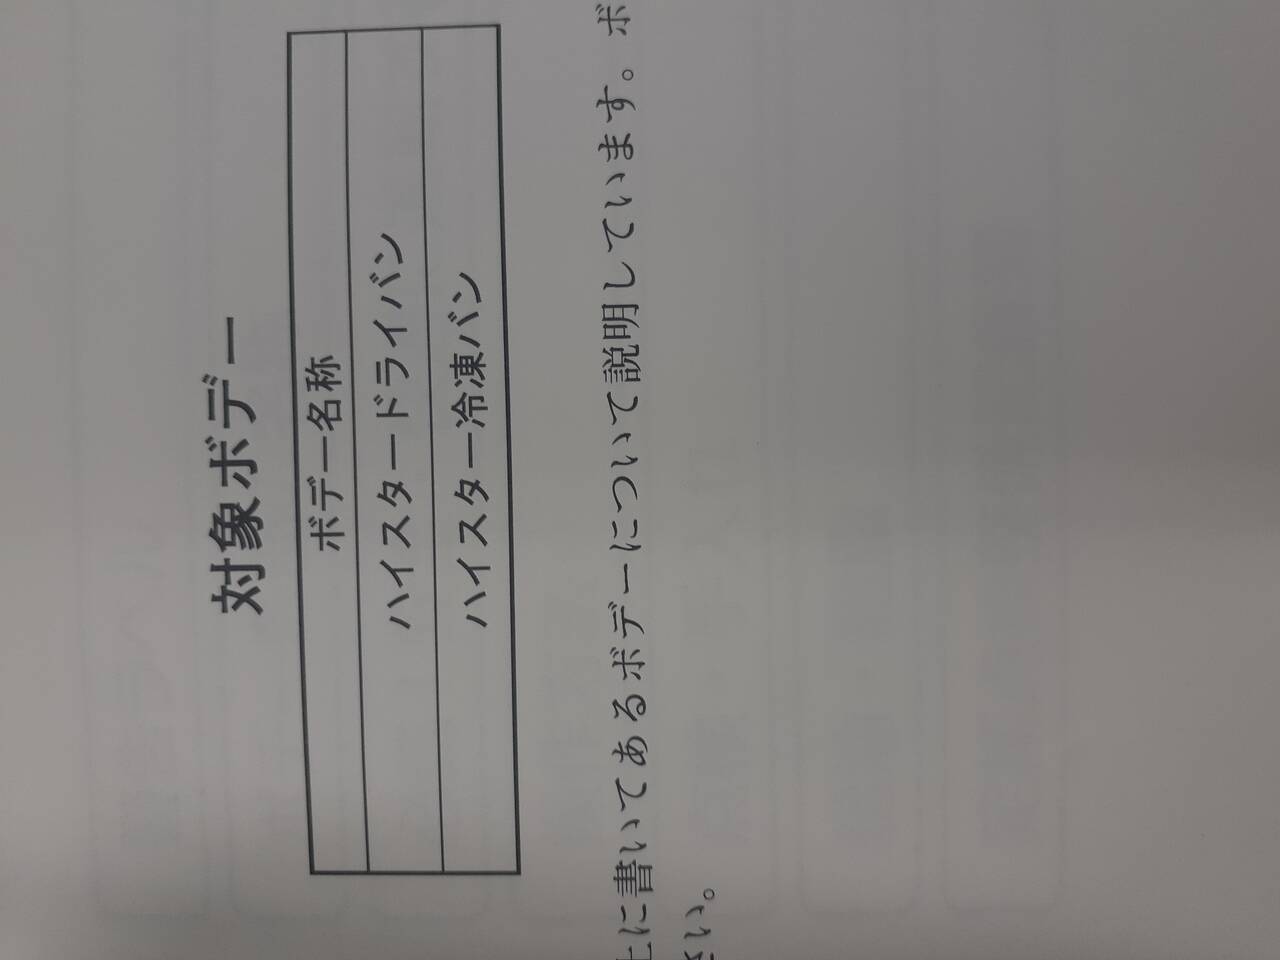 対象ボデー
ボデー名称
ハイスタードライバン
ハイスター冷凍バン
上に書いてあるボデーについて説明しています。ボ
さい。